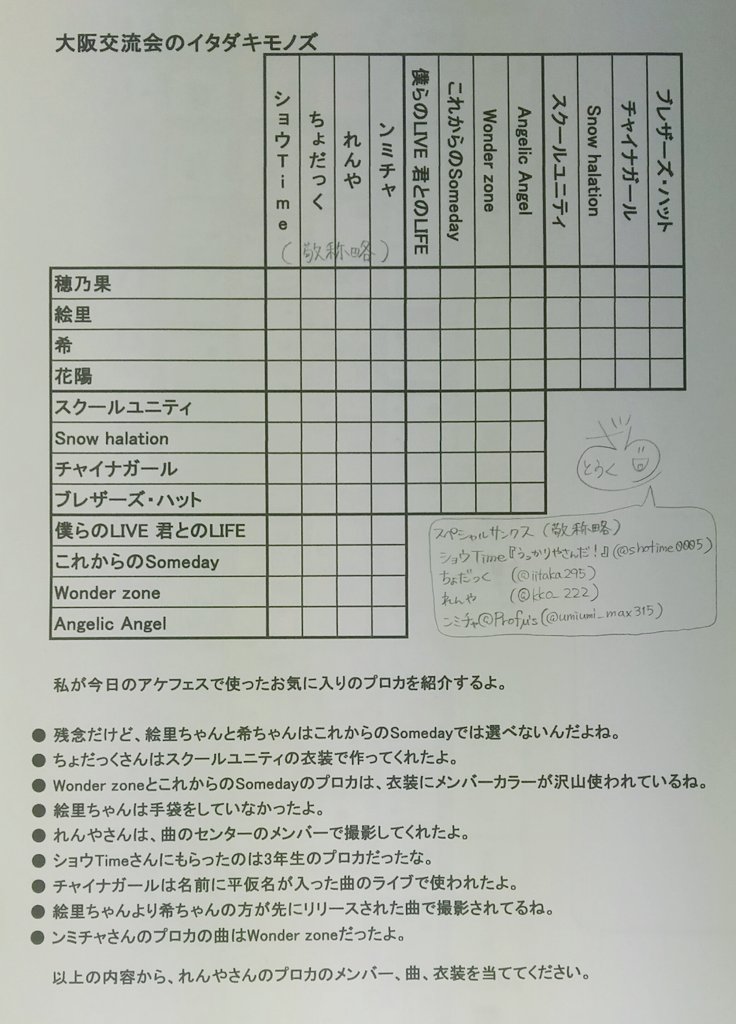 大阪交流会のイタダキモノズ
ショウTime
ちょだっく
れんや
ンミチャ
僕らのLIVE 君とのLIFE
これからのSomeday
Wonder zone
Angelic Angel
スクールユニティ
Snow halation
チャイナガール
ブレザーズ・ハット
(敬称略)
穂乃果
絵里
希
花陽
スクールユニティ
Snow halation
チャイナガール
ブレザーズ・ハット
僕らのLIVE 君とのLIFE
これからのSomeday
Wonder zone
Angelic Angel
とうく
スペシャルサンクス (敬称略)
ショウTime『うっかりやさんだ!』(@shotime0005)
ちょだっく (@iitaka295)
れんや (@kka_222)
ンミチャ@Profu's(@umiumi_max315)
私が今日のアケフェスで使ったお気に入りのプロカを紹介するよ。
● 残念だけど、絵里ちゃんと希ちゃんはこれからのSomedayでは選べないんだよね。
● ちょだっくさんはスクールユニティの衣装で作ってくれたよ。
● Wonder zoneとこれからのSomedayのプロカは、衣装にメンバーカラーが沢山使われているね。
● 絵里ちゃんは手袋をしていなかったよ。
● れんやさんは、曲のセンターのメンバーで撮影してくれたよ。
● ショウTimeさんにもらったのは3年生のプロカだったな。
● チャイナガールは名前に平仮名が入った曲のライブで使われたよ。
● 絵里ちゃんより希ちゃんの方が先にリリースされた曲で撮影されてるね。
● ンミチャさんのプロカの曲はWonder zoneだったよ。
以上の内容から、れんやさんのプロカのメンバー、曲、衣装を当ててください。